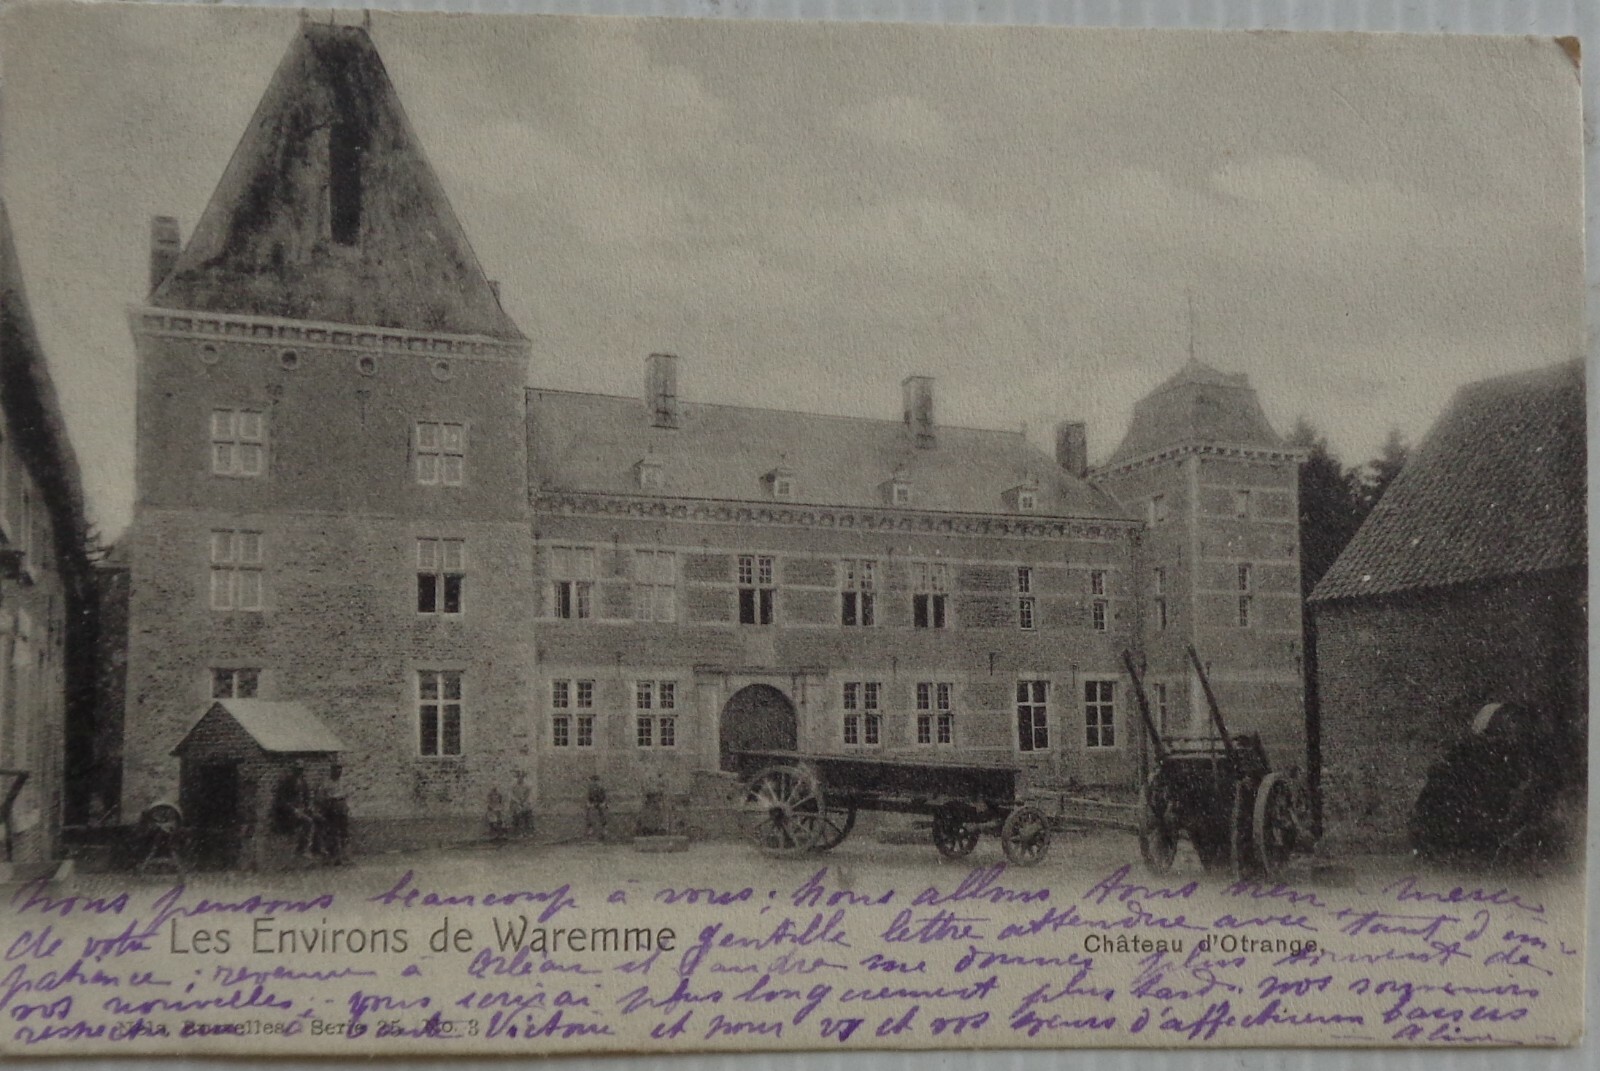 Nous pensons beaucoup à vous; nous allons tous bien. merci
de votre gentille lettre attendue avec tant d'im-
patience; revenue à Orléans et tandre me donner plus souvent de
vos nouvelles; vous écrirai plus longuement plus tard. nos souvenirs
respectueux à tante Victoire et pour vs et vos sœurs d'affectueux baisers
Aline
Les Environs de Waremme
Château d'Otrange.
Nels, Bruxelles, Serie 25, No. 3